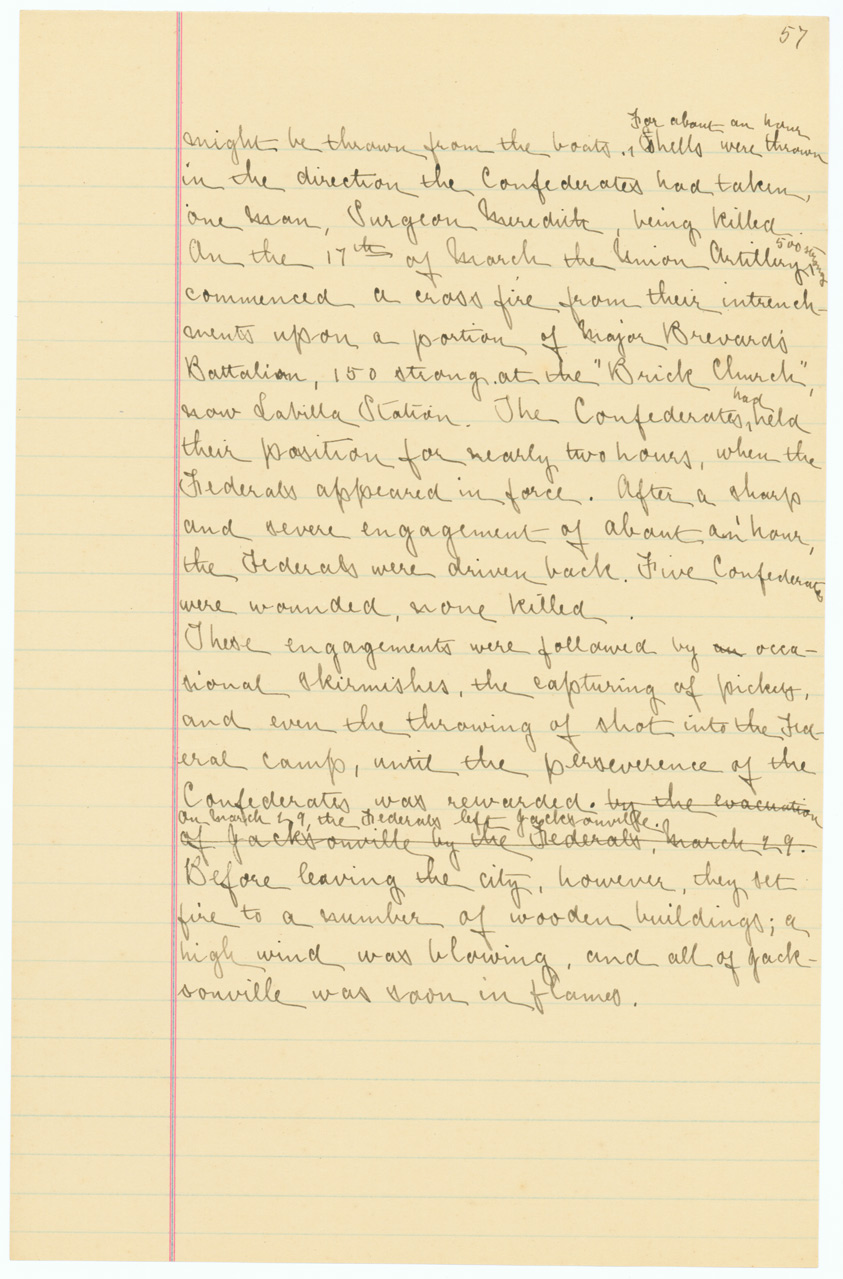 57
For about an hour
might be thrown from the boats. , Shells were thrown
in the direction the Confederates had taken,
one man, Surgeon Meredith, being killed.
500 strong
On the 17th of March the Union Artillery,
commenced a cross fire from their intrench-
ments upon a portion of Major Brevard's
Battalion, 150 strong at the "Brick Church",
had
now LaVilla Station. The Confederates, held
their position for nearly two hours, when the
Federals appeared in force. After a sharp
and severe engagement of about an hour,
the Federals were driven back. Five Confederates
were wounded, none killed.
These engagements were followed by an occa-
sional skirmishes, the capturing of pickets,
and even the throwing of shot into the Fed-
eral camp, until the perseverence of the
Confederates was rewarded. by the evacuation
on March 29, the Federals left Jacksonville.
of Jacksonville by the Federals, March 29.
Before leaving the city, however, they set
fire to a number of wooden buildings; a
high wind was blowing, and all of Jack-
sonville was soon in flames.